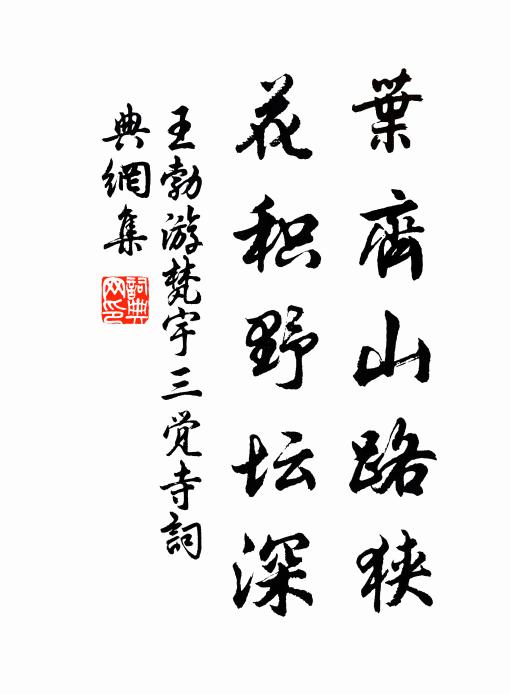 葉齊山路狹
花积野坛深
王勃游梵宇三觉寺詞
典網集
詞典网印